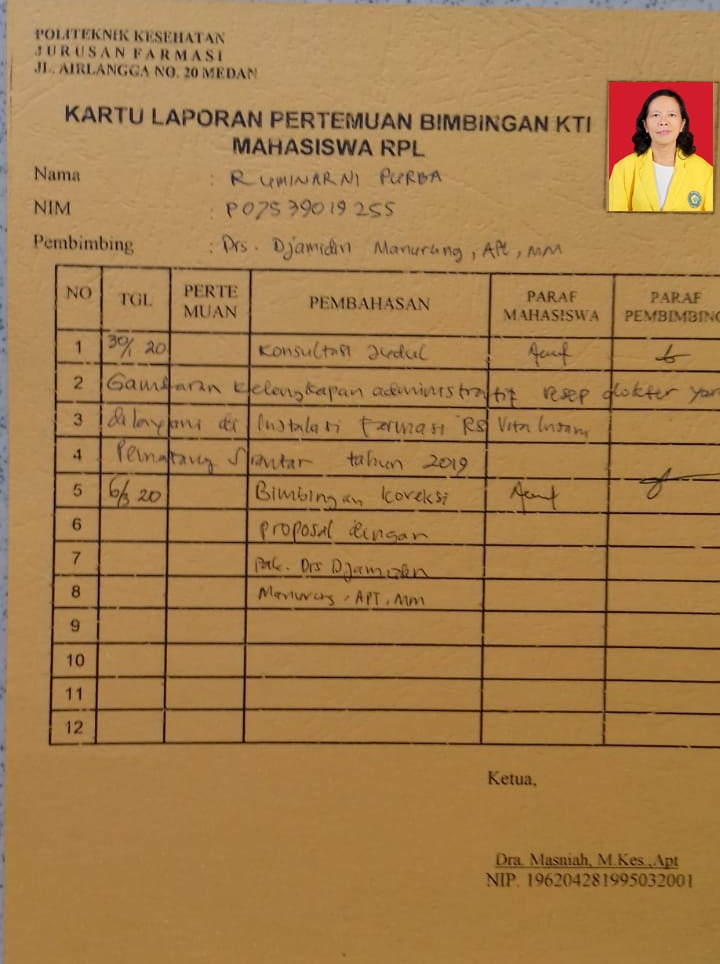 POLITEKNIK KESEHATAN
JURUSAN FARMASI
JL. AIRLANGGA NO. 20 MEDAN
KARTU LAPORAN PERTEMUAN BIMBINGAN KTI
MAHASISWA RPL
Nama : RUMINARNI PURBA
NIM : P07539019255
Pembimbing : Drs. Djamidin Manurung, Apt, MM
NO TGL PERTE MUAN PEMBAHASAN PARAF MAHASISWA PARAF PEMBIMBING
1 30/1 20 Konsultasi Judul
2 Gambaran kelengkapan administratif resep dokter yan
3 dilayani di Instalasi Farmasi RS Vita Insani
4 Pematang Siantar tahun 2019
5 6/3 20 Bimbingan koreksi
6 proposal dengan
7 Bak. Drs Djamidin
8 Manurung, APT, MM
9
10
11
12
Ketua,
Dra. Masniah, M.Kes.,Apt
NIP. 196204281995032001